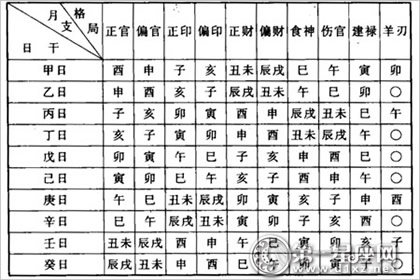 月 格
支
日 干 局 正官 偏官 正印 偏印 正财 偏财 食神 伤官 建禄 羊刃
甲日 酉 申 子 亥 丑未 辰戌 巳 午 寅 卯
乙日 申 酉 亥 子 辰戌 丑未 午 巳 卯 〇
丙日 子 亥 卯 寅 酉 申 辰戌 丑未 巳 午
丁日 亥 子 寅 卯 申 酉 丑未 辰戌 午 〇
戊日 卯 寅 午 巳 子 亥 申 酉 巳 〇
己日 寅 卯 巳 午 亥 子 酉 申 午 〇
庚日 午 巳 丑未 辰戌 卯 寅 亥 子 申 酉
辛日 巳 午 辰戌 丑未 寅 卯 子 亥 酉 〇
壬日 丑未 辰戌 酉 申 午 巳 寅 卯 亥 子
癸日 辰戌 丑未 申 酉 巳 午 卯 寅 子 〇
第一星座网